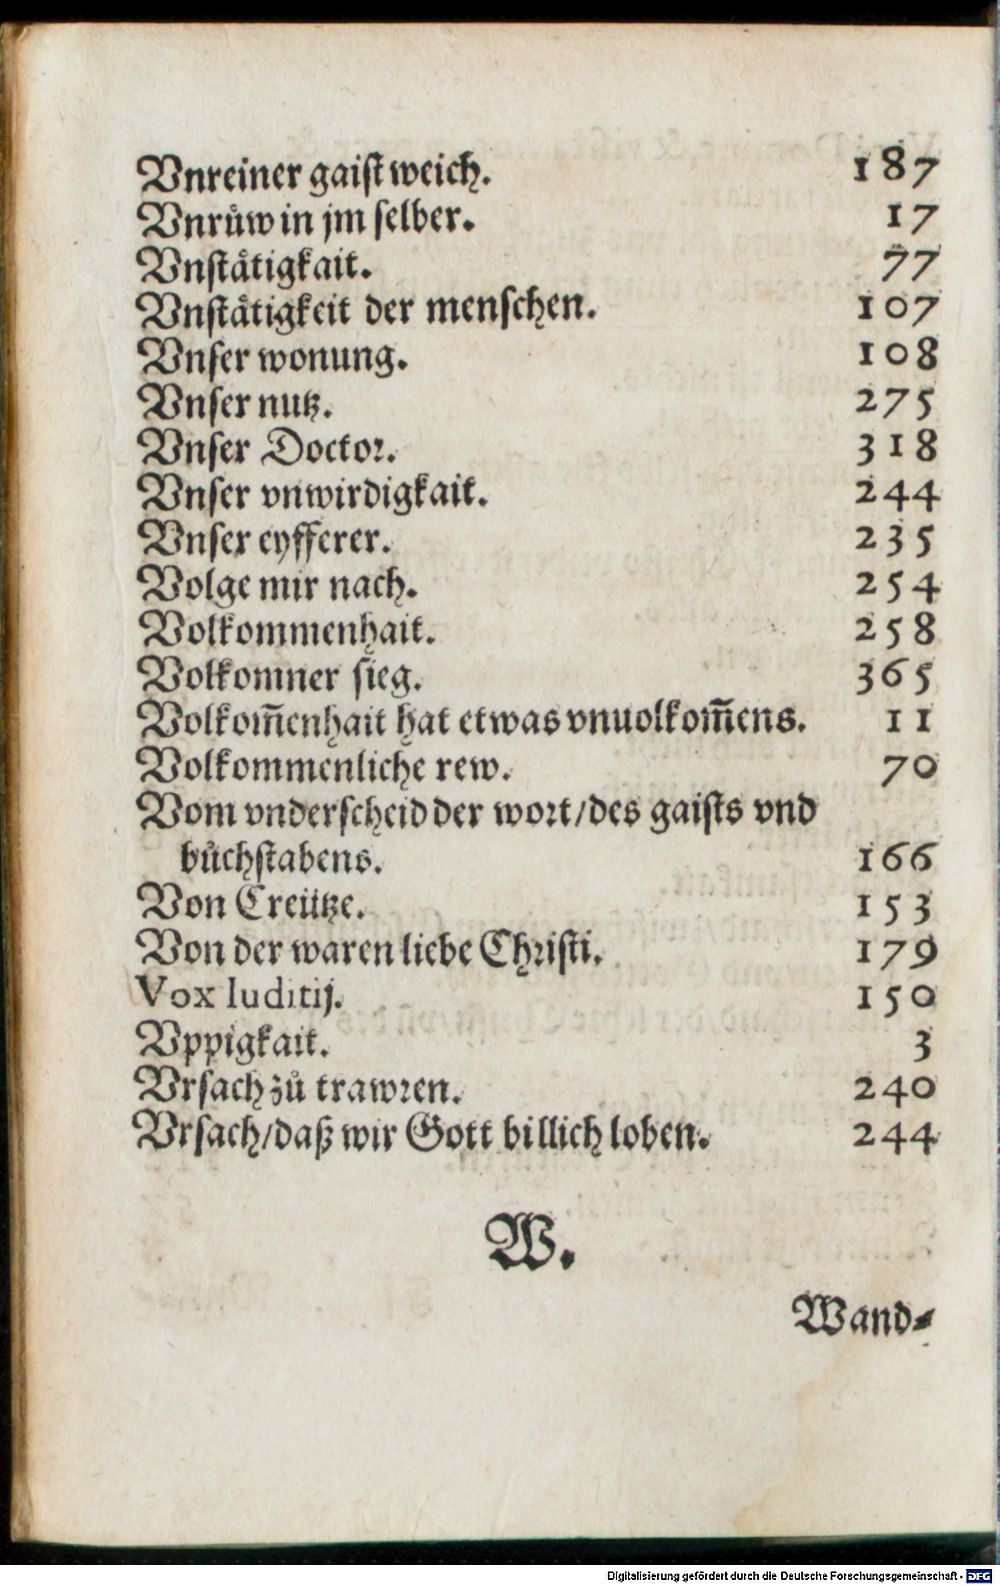 Vnreiner gaist weich. 187
Vnrůw in jm selber. 17
Vnståtigkait. 77
Vnståtigkeit der menschen. 107
Vnser wonung. 108
Vnser nutz. 275
Vnser Doctor. 318
Vnser vnwirdigkait. 244
Vnser eyfferer. 235
Volge mir nach. 254
Volkommenhait. 258
Volkomner sieg. 365
Volkom̃enhait hat etwas vnuolkom̃ens. 11
Volkommenliche rew. 70
Vom vnderscheid der wort/des gaists vnd
bůchstabens. 166
Von Creütze. 153
Von der waren liebe Christi. 179
Vox Iuditij. 150
Vppigkait. 3
Vrsach zů trawren. 240
Vrsach/daß wir Gott billich loben. 244
W.
Wand⸗
Digitalisierung gefördert durch die Deutsche Forschungsgemeinschaft - DFG